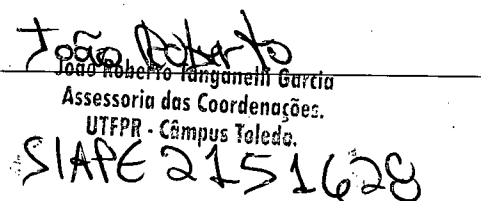 João Roberto
João Roberto Tanganelli Garcia
Assessoria das Coordenações.
UTFPR - Câmpus Toledo.
SIAPE 2151628